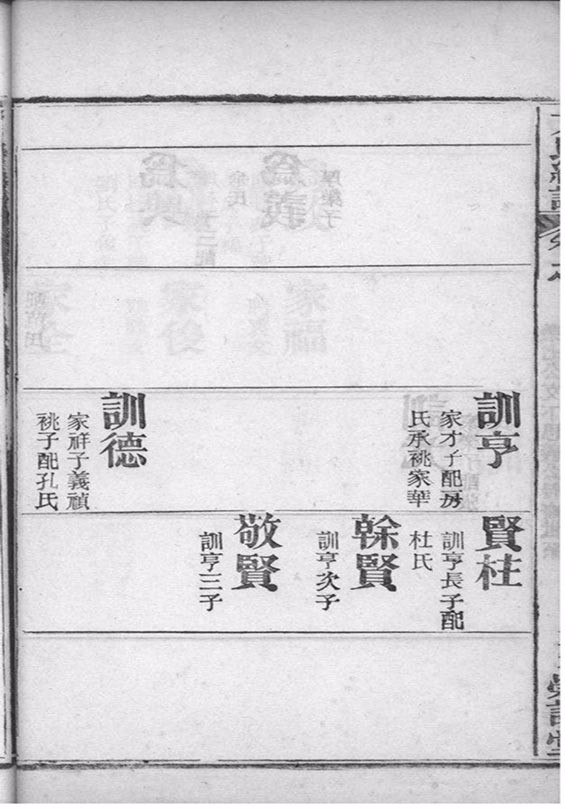 訓亨
家才子配房
氏承祧家華
訓德
家祥子義禎
祧子配孔氏
賢柱
訓亨長子配
杜氏
榦賢
訓亨次子
敬賢
訓亨三子